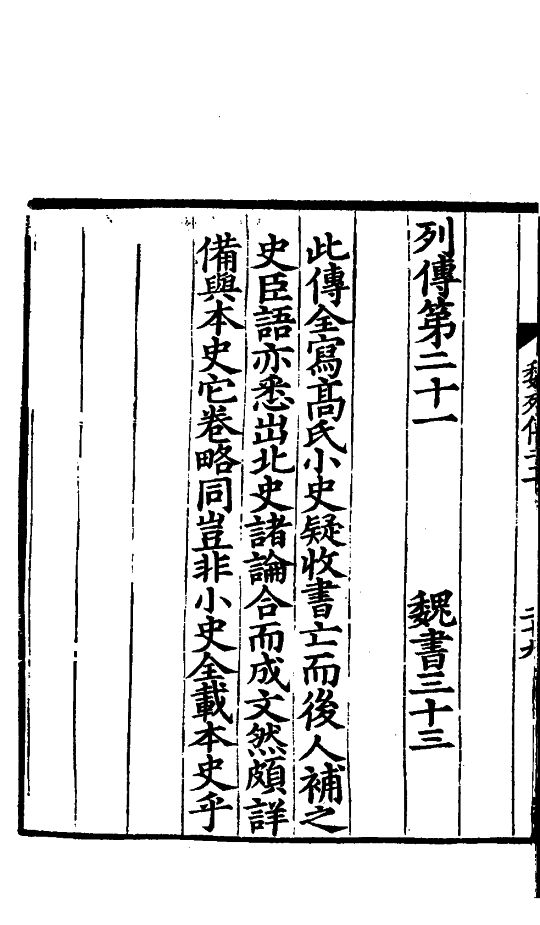 魏列傳二十一
二十九
列傳第二十一 魏書三十三
此傳全寫高氏小史疑收書亡而後人補之
史臣語亦悉出北史諸論合而成文然頗詳
備與本史它卷略同豈非小史全載本史乎